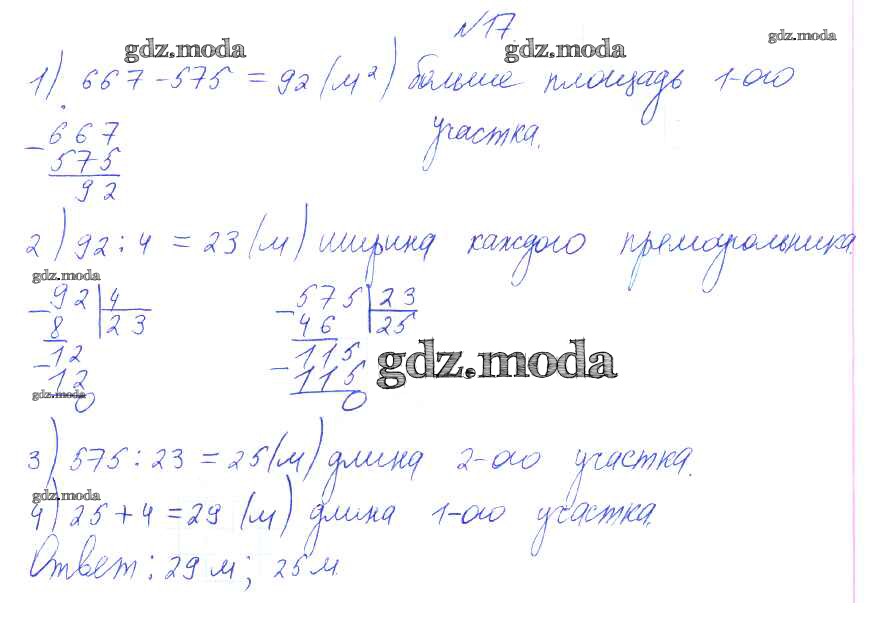 №17.
gdz.moda gdz.moda gdz.moda
1) 667 - 575 = 92 (м²) больше площадь 1-ого
участка.
- 667
575
92
2) 92 : 4 = 23 (м) ширина каждого прямоугольника.
gdz.moda
- 92 | 4
8 | 23
- 12
12
0
- 575 | 23
46 | 25
- 115
115
0
gdz.moda
gdz.moda
3) 575 : 23 = 25 (м) длина 2-ого участка.
gdz.moda
4) 25 + 4 = 29 (м) длина 1-ого участка.
Ответ: 29 м; 25 м.